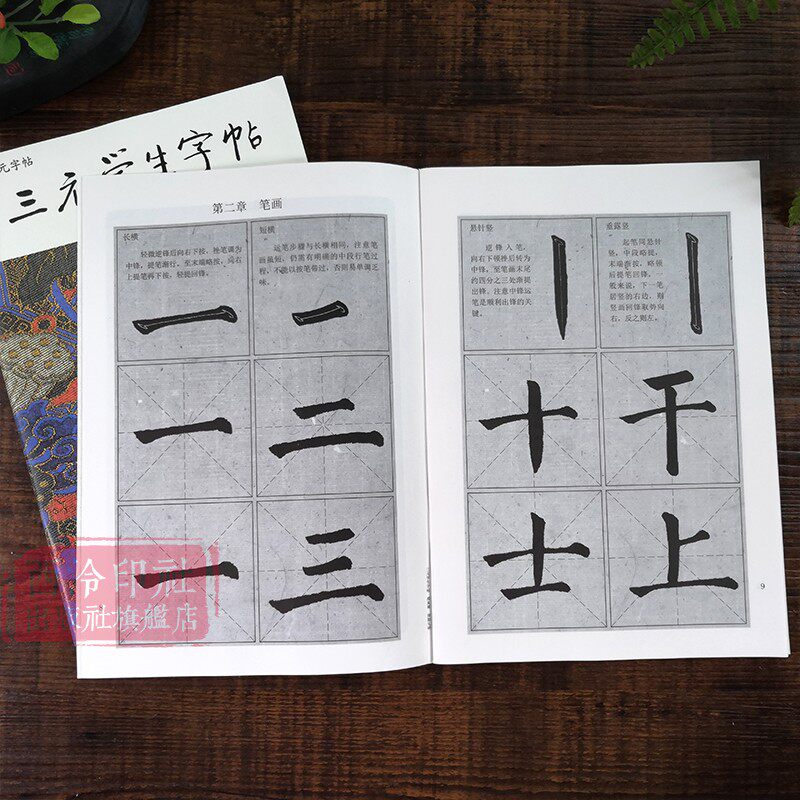 元字帖
三元学生字帖
第二章 笔画
长横
轻微逆锋后向右下按,挫笔调为
中锋,提笔渐行。至末端略按,向右
上提笔再下按,轻提回锋。
短横
运笔步骤与长横相同,注意笔
画虽短,仍需有明确的中段行笔过
程,不能以按笔带过,否则易单调乏
味。
一
二
一
三
悬针竖
逆锋入笔,
向右下顿挫后转为
中锋,至笔画末尾
约四分之三处渐提
出锋。注意中锋运
笔是顺利出锋的关
键。
垂露竖
起笔同悬针
竖,中段略提,
末端渐按,略顿
后提笔回锋。一
般来说,下一笔
居竖的右边,则
竖画回锋取势向
右,反之则左。
十
干
士
上
9
泠印社
社旗舰店